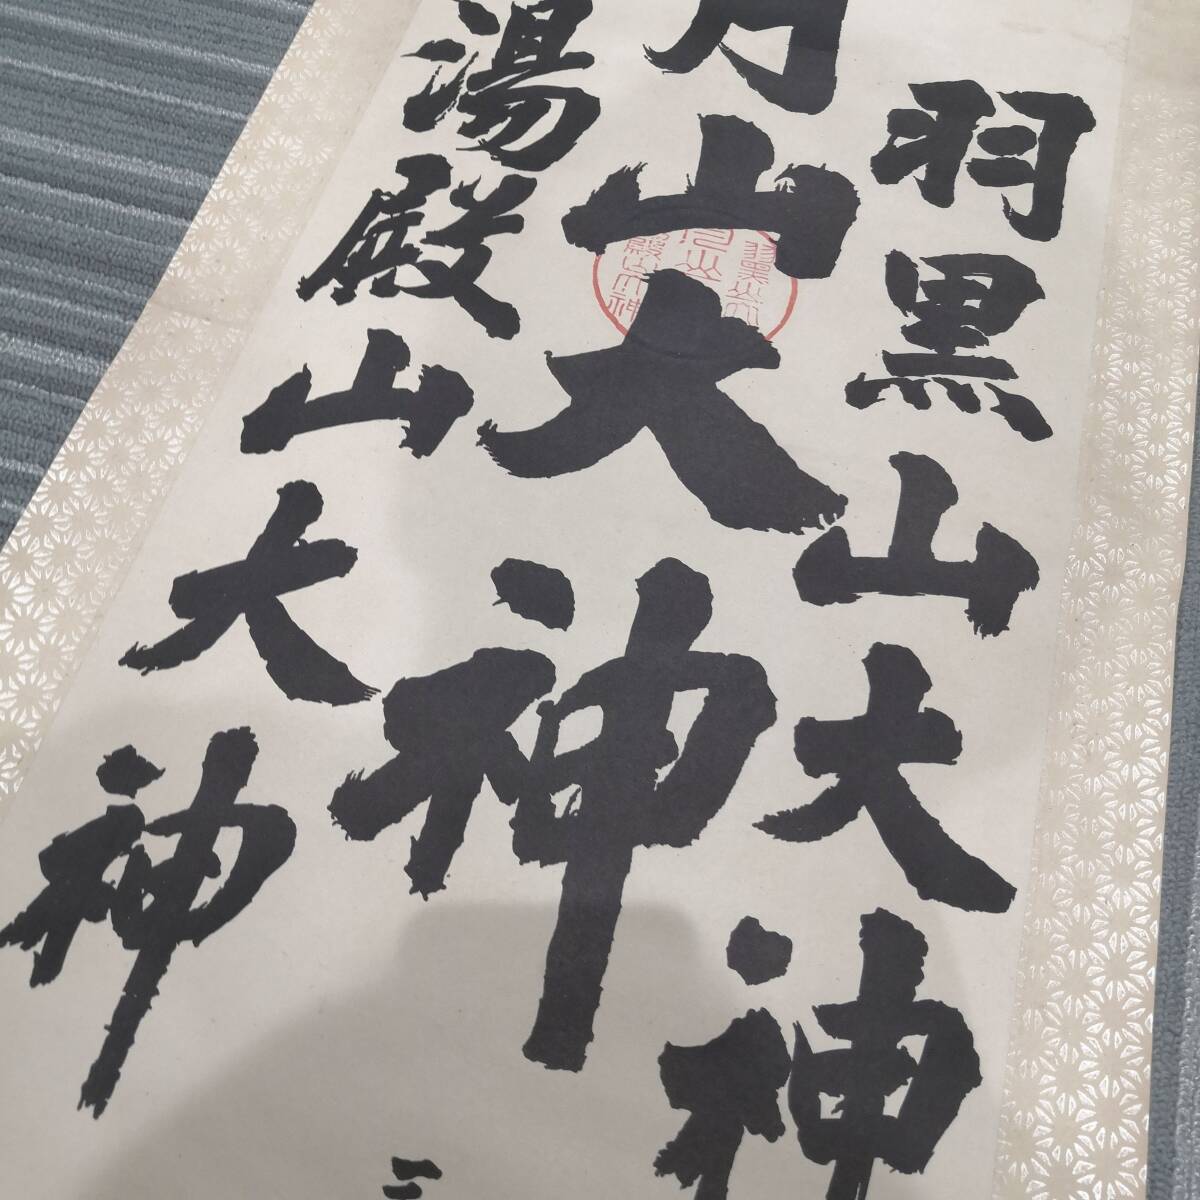 羽黒山大神
月山大神
湯殿山大神